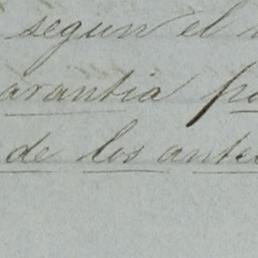 segun el
arantia p
de los ante